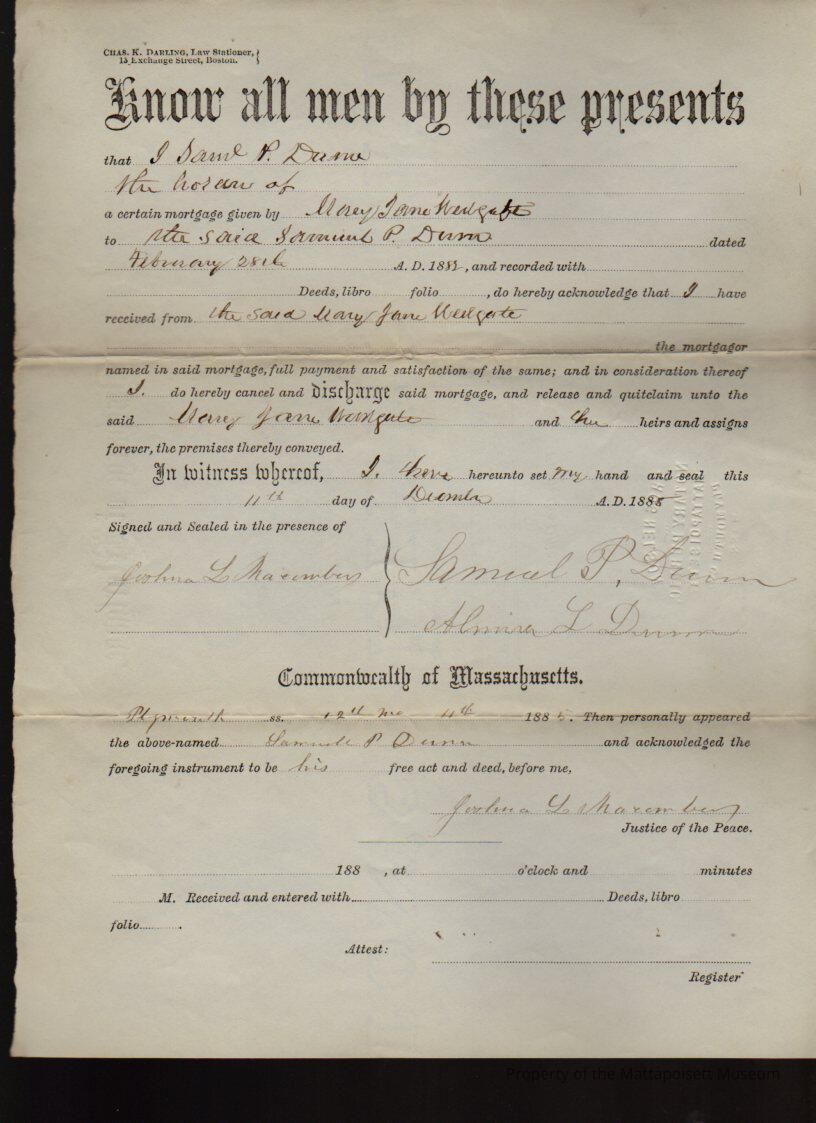 CHAS. K. DARLING, Law Stationer,
15 Exchange Street, Boston.
Know all men by these presents
that I Saml P. Dunn
the holder of
a certain mortgage given by Mary Jane Westgate
to the said Samuel P. Dunn dated
February 28th A. D. 188, and recorded with
Deeds, libro folio , do hereby acknowledge that I have
received from the said Mary Jane Westgate
the mortgagor
named in said mortgage, full payment and satisfaction of the same; and in consideration thereof
I. do hereby cancel and discharge said mortgage, and release and quitclaim unto the
said Mary Jane Westgate and her heirs and assigns
forever, the premises thereby conveyed.
In witness whereof, I. have hereunto set my hand and seal this
11th day of A. D. 1885
Signed and Sealed in the presence of
Joshua L Macomber Samuel P. Dunn
Almira L Dunn
Commonwealth of Massachusetts.
Plymouth ss. 12th mo 11th 1885. Then personally appeared
the above-named Samuel P Dunn and acknowledged the
foregoing instrument to be his free act and deed, before me,
Joshua L Macomber
Justice of the Peace.
188 , at o'clock and minutes
M. Received and entered with Deeds, libro
folio .
Attest:
Register
Property of the Mattapoisett Museum